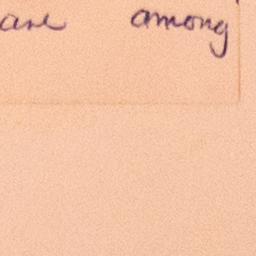 are among